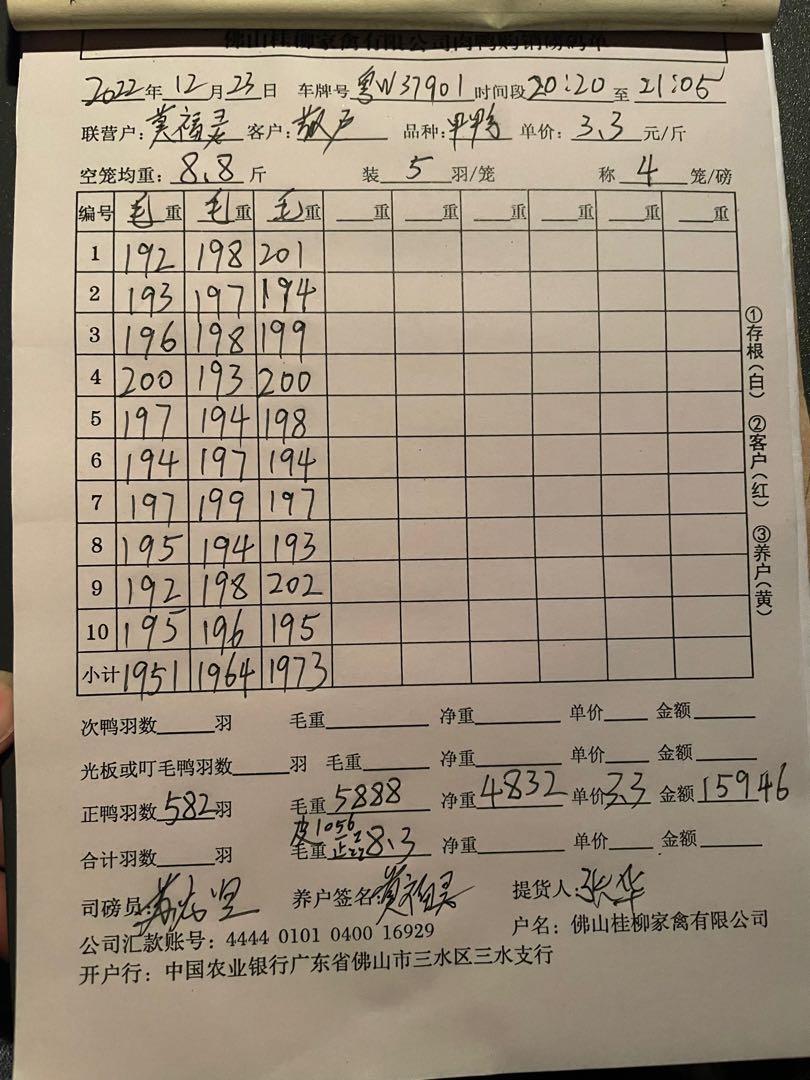 佛山桂柳家禽有限公司肉鸭购销磅码单
2022年12月23日 车牌号粤W37901时间段20:20至21:05
联营户:莫福灵 客户:散户 品种:甲鸭 单价:3.3元/斤
空笼均重:8.8斤 装5羽/笼 称4笼/磅
编号 毛重 毛重 毛重 ___重 ___重 ___重 ___重 ___重 ___重
1 192 198 201
2 193 197 194
3 196 198 199
4 200 193 200
5 197 194 198
6 194 197 194
7 197 199 197
8 195 194 193
9 192 198 202
10 195 196 195
小计 1951 1964 1973
次鸭羽数___羽 毛重___ 净重___ 单价___ 金额___
光板或叮毛鸭羽数___羽 毛重___ 净重___ 单价___ 金额___
正鸭羽数582羽 毛重5888 净重4832 单价3.3 金额15946
皮1056
合计羽数___羽 毛重 8.3 净重___ 单价___ 金额___
司磅员: 养户签名:莫福灵 提货人:张华
公司汇款账号:4444 0101 0400 16929 户名:佛山桂柳家禽有限公司
开户行:中国农业银行广东省佛山市三水区三水支行
①存根(白) ②客户(红) ③养户(黄)